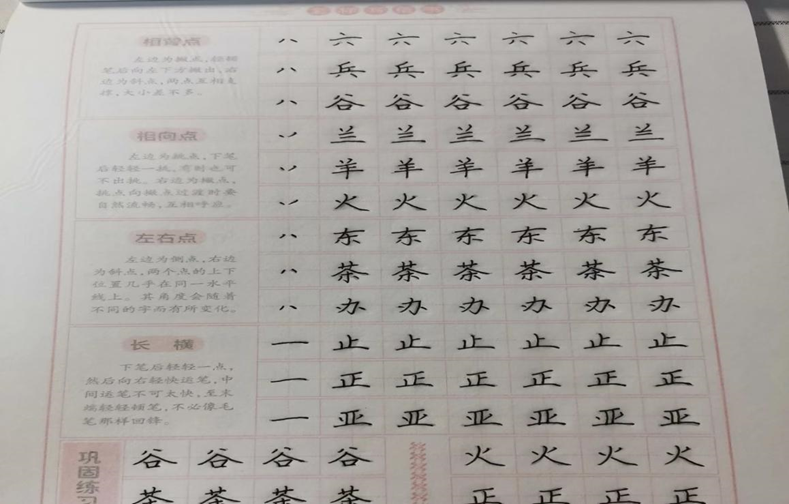 相背点
左边为撇点,
笔后向左下方撇出,右
边为斜点,两点互相
,大小差不多。
八 六 六 六 六 六 六
八 兵 兵 兵 兵 兵 兵
八 谷 谷 谷 谷 谷 谷
相向点
左边为挑点,下笔
后轻轻一挑,有时也可
不出挑。右边为撇点,
挑点向撇点过渡时要
自然流畅,互相呼应。
丷 兰 兰 兰 兰 兰 兰
丷 羊 羊 羊 羊 羊 羊
丷 火 火 火 火 火 火
左右点
左边为侧点,右边
为斜点,两个点的上下
位置几乎在同一水平
线上。其角度会随着
不同的字而有所变化。
八 东 东 东 东 东 东
八 茶 茶 茶 茶 茶 茶
八 办 办 办 办 办 办
长横
下笔后轻轻一点,
然后向右轻快运笔,中
间运笔不可太快,至末
端轻轻顿笔,不必像毛
笔那样回锋。
一 止 止 止 止 止 止
一 正 正 正 正 正 正
一 亚 亚 亚 亚 亚 亚
巩固练习
谷 谷 谷 谷 火 火 火 火
茶 茶 茶 茶 正 正 正 正